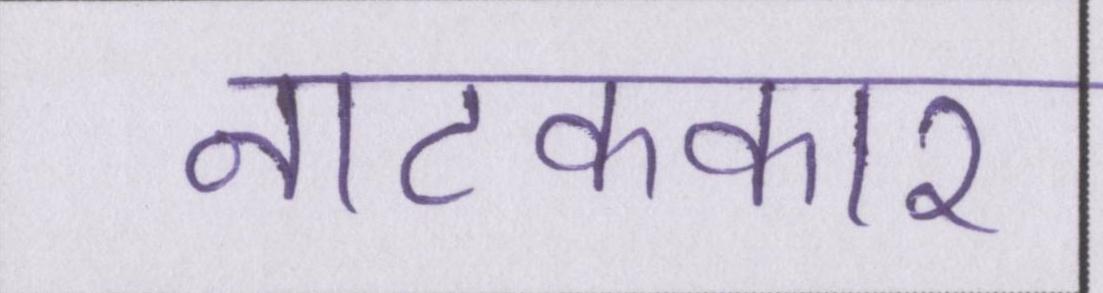 नाटककार